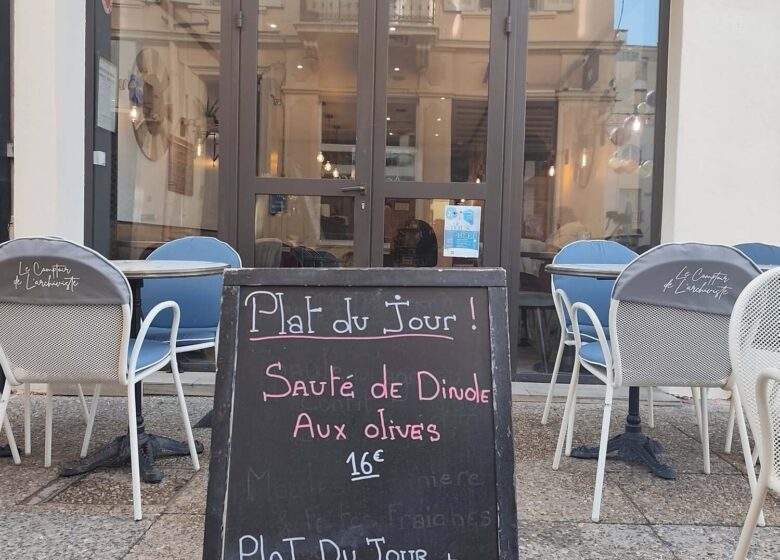 Le Comptoir
de L'archiviste
Le Comptoir
de L'archiviste
Plat du Jour !
Sauté de Dinde
Aux olives
16€
Plat Du Jour +